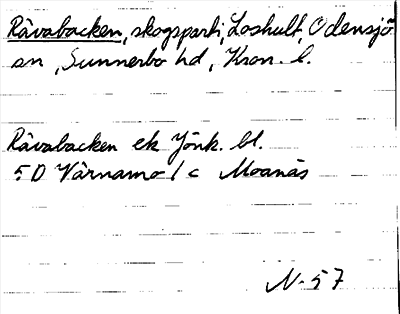 Råvabacken, skogsparti, Loshult, Odensjö
sn, Sunnerbo hd, Kron. l.
Råvabacken ek Jönk. bl.
5D Värnamo 1 c Moanäs
N-57